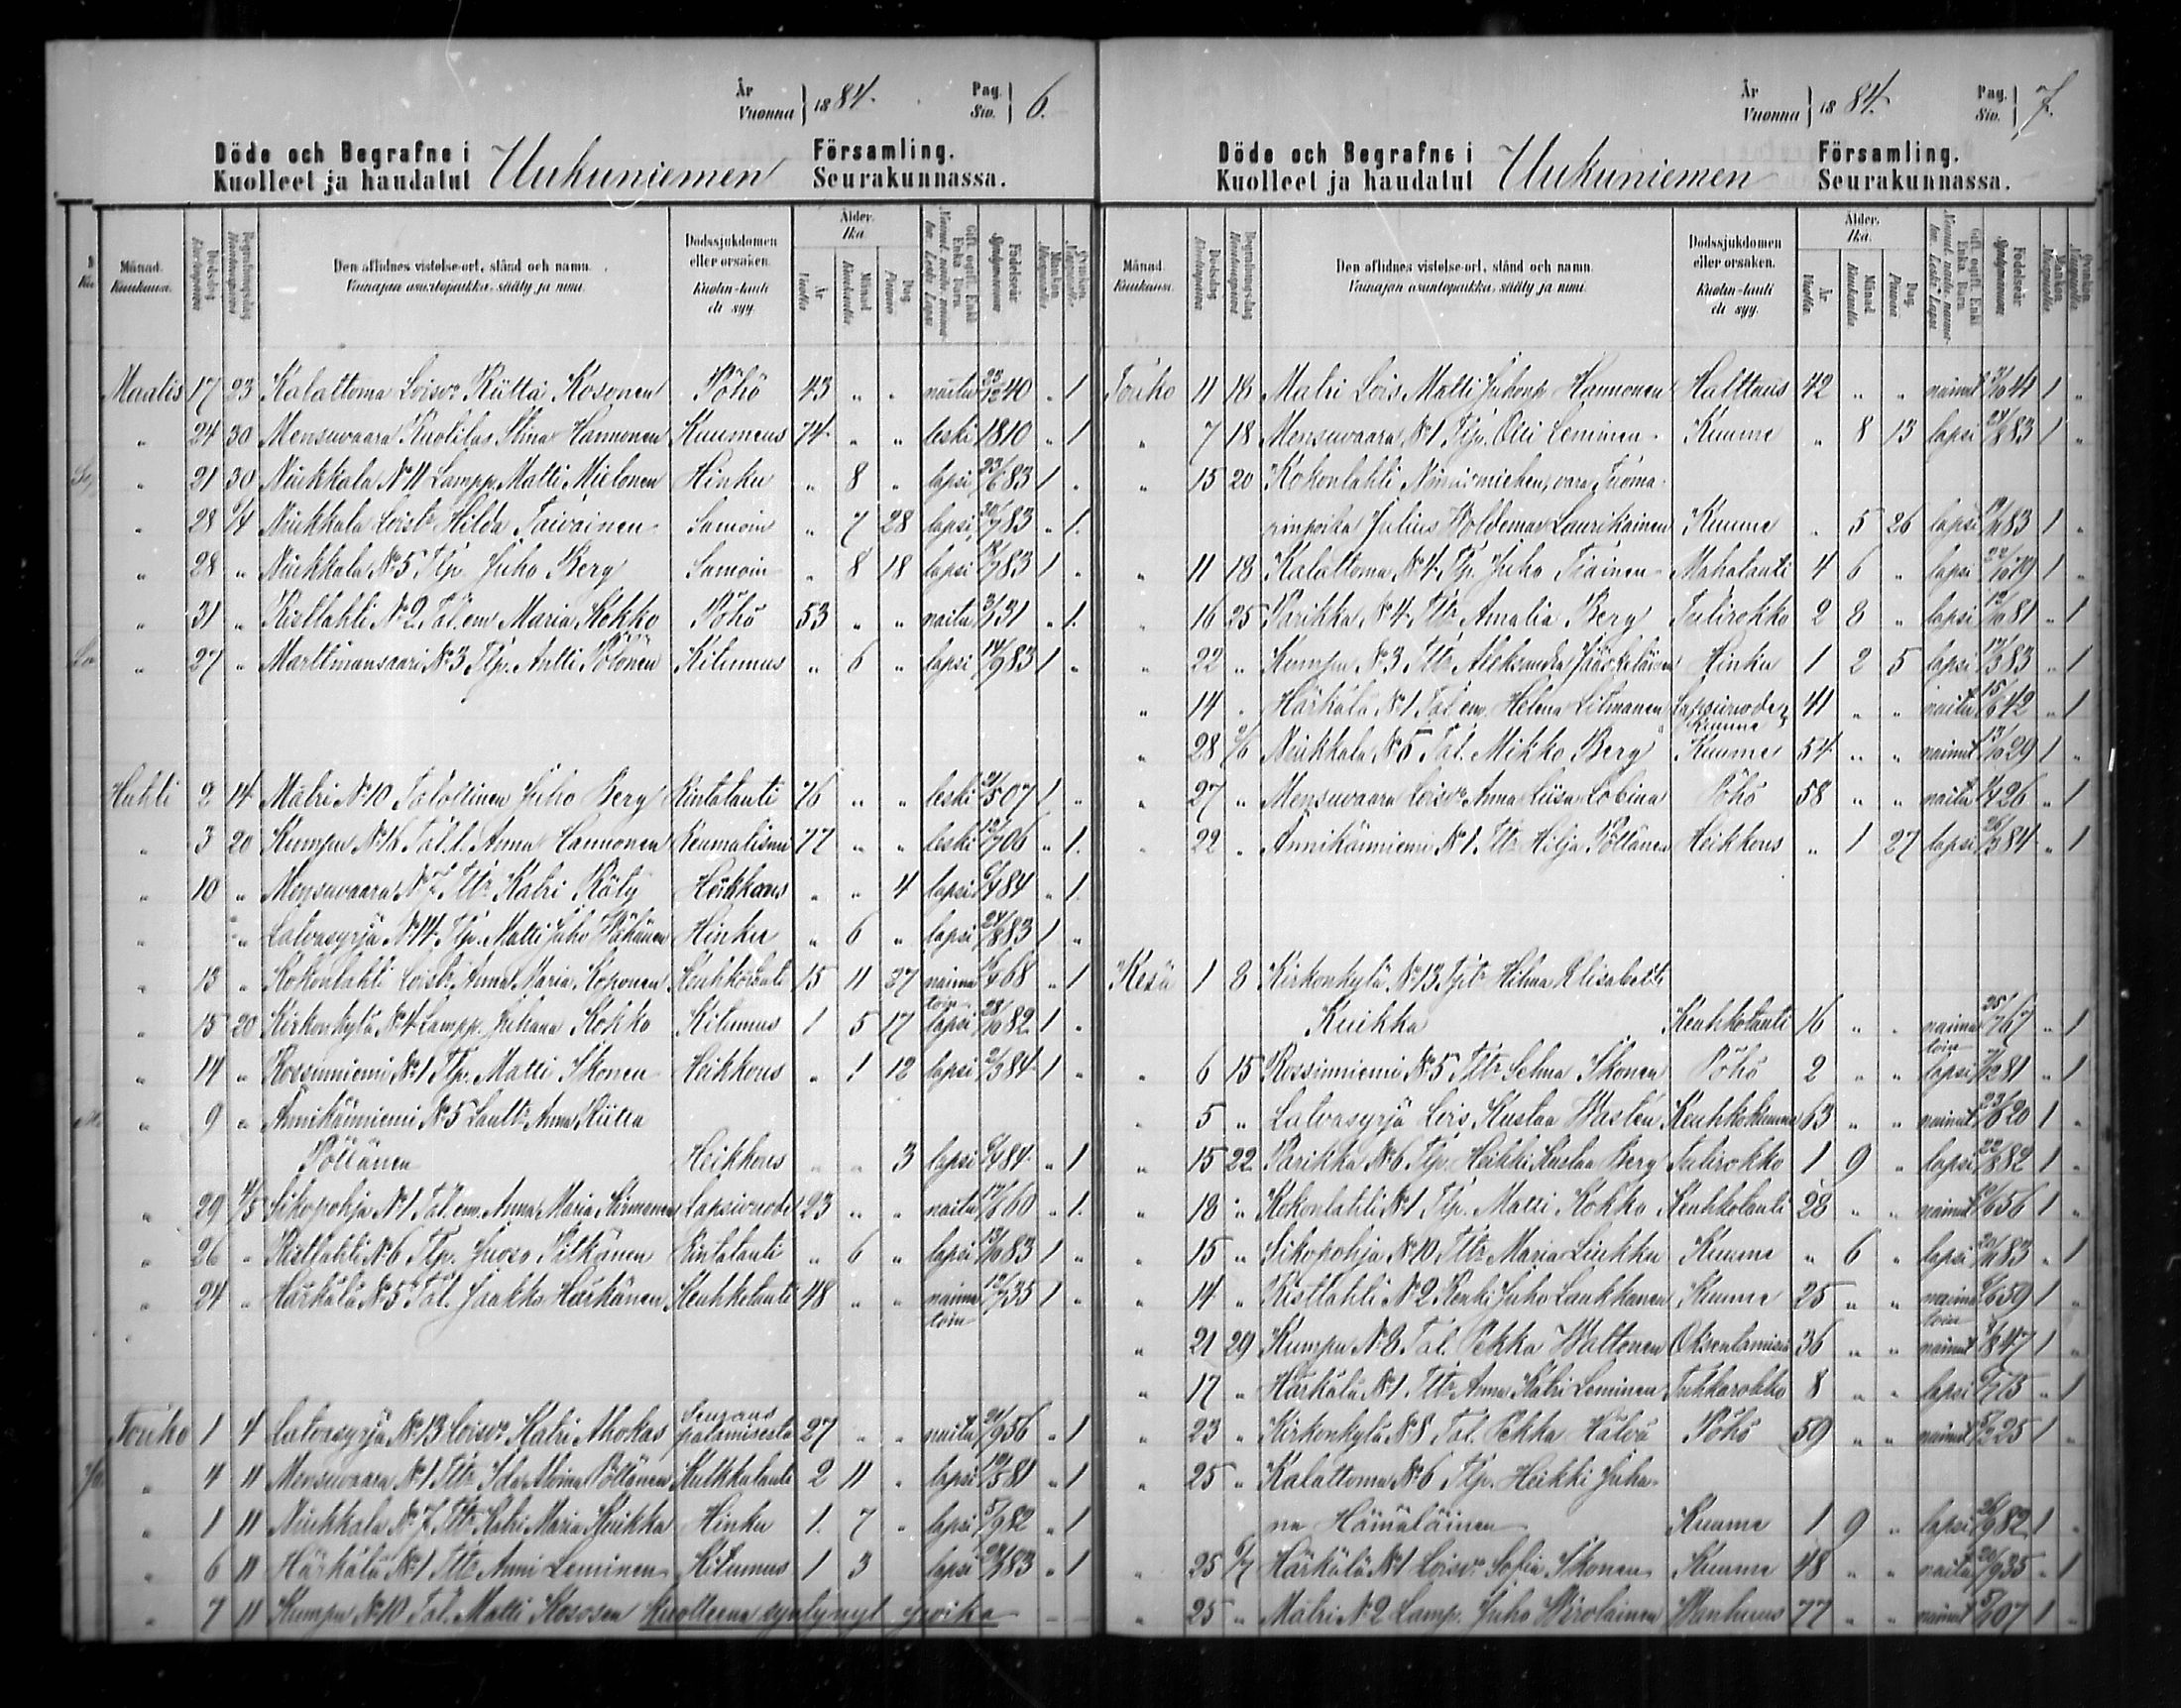 År
Vuonna } 1884. Pag. Siv. | 6.
Döde och Begrafne i Uukuniemen Församling.
Kuolleet ja haudatut Seurakunnassa.
Månad. Kuukausi. Dödsdag Kuolinpäivä Begrafningsdag Hautauspäivä Den aflidnes vistelse-ort, stånd och namn. Vainajan asuntopaikka, sääty ja nimi. Dödssjukdomen eller orsaken. Kuolin-tauti eli syy. Ålder. Ikä. År Vuotta Månad Kuukautta Dag Päivää Födelseår Syntymävuosi Mankön Miespuolta Qvinkön
Maalis 17 23 Kalattoma Loisv:o Riitta Kosonen Pöhö 43 " " naitu 23/12 40 " 1
" 24 30 Mensuvaara Ruotilas Stina Hannonen Kuumeus 74 " " leski 1810 " 1
" 21 30 Niukkala N:o 11 Lampp. Matti Mielonen Hinku " 8 " lapsi 23/6 83 1 "
" 28 6/4 Niukkala Loistr Hilda Taivainen Samoin " 7 28 lapsi 30/7 83 " 1.
" 28 " Niukkala N:o 5 Tlp. Juho Berg Samoin " 8 18 lapsi 18/7 83 1 "
" 31 " Ristlahti N:o 2 Tal. em Maria Kokko Pöhö 53 " " naitu 3/1 31 " 1.
" 27 " Marttinansaari N:o 3 Tlp. Antti Pölönen Kitumus " 6 " lapsi 14/9 83 1 "
Huhti 2 14 Matri N:o 10 Talollinen Juho Berg Rintatauti 76 " " leski 21/5 07 1 "
" 3 20 Kumpu N:o 16 Tal. l. Anna Hannonen Reumatismi 77 " " leski 12/7 06 " 1.
" 10 " Mensuvaara N:o 7 Tltr Katri Räty Heikkous " " 4 lapsi 6/4 84 " 1.
" " Latvasyrjä N:o 14 Tlp. Matti Juho Hinku " 6 " lapsi 24/8 83 1 "
" 13 " Kokonlahti Loistr Anna Maria Koponen Keuhkotauti 15 11 27 naimatoin 68 " 1
" 15 20 Kirkonkylä N:o 4 Lampp. Juhana Kokko Kitumus 1 5 17 lapsi 28/10 82 1 "
" 14 " Rossinniemi N:o 1 Tlp. Matti Ikonen Heikkous " 1 12 lapsi 2/3 84 1 "
" 9 " Annikäinniemi N:o 5 Anna Riitta
Pöllänen Heikkous " " 3 lapsi 6/4 84 " 1
" 29 4/5 Sikopohja N:o 1 Tal. em. Anna Maria Lapsivuode 23 " " naitu 60 " 1.
" 26 " Ristlahti N:o 6 Tlp. Juoso Pitkänen Rintatauti " 6 " lapsi 13/10 83 1 "
" 24 " Härkälä N:o 5 Tal. Jaakko Härkänen Keuhkotauti 48 " " naimatoin 12/7 35 1 "
Touko 1 4 Latvasyrjä N:o 13 Loisv:o Katri Ahokas palamisesta 27 " " naitu 21/9 56 " 1
" 4 11 Mensuvaara N:o 1 Tltr Ida Pöllänen Kulkkutauti 2 11 " lapsi 19/5 81 " 1
" 1 11 Niukkala N:o 7 Tltr Katri Maria Kuikka Hinku 1. 7 " lapsi 5/9 82 " 1
" 6 11 Härkälä N:o 1 Tltr Anni Leminen Kitumus 1 3 lapsi 83 " 1
" 7 11 Kumpu N:o 10 Tal. Matti Kososen kuolleena syntynyt poika
År
Vuonna } 1884. Pag. Siv. | 7.
Döde och Begrafne i Uukuniemen Församling.
Kuolleet ja haudatut Seurakunnassa.
Månad. Kuukausi. Dödsdag Kuolinpäivä Begrafningsdag Hautauspäivä Den aflidnes vistelse-ort, stånd och namn. Vainajan asuntopaikka, sääty ja nimi. Dödssjukdomen eller orsaken. Kuolin-tauti eli syy. Ålder. Ikä. År Vuotta Månad Kuukautta Dag Päivää Födelseår Syntymävuosi Mankön Miespuolta Qvinkön
Touko 11 18 Matri Lois Matti Juhonp. Hannonen Halttaus 42 " " nainut 41 1 "
" 7 18 Mensuvaara N:o 1 Tlp. Olli Leminen Kuume " 8 13 lapsi 24/8 83 1 "
" 15 20 Kokonlahti Nimismiehen, vara Tuoma-
rinpoika Julius Woldemar Laurikainen Kuume " 5 26 lapsi 19/11 83 1 "
" 11 18 Kalattoma N:o 4 Tlp. Juho Tiainen Mahatauti 4 6 " lapsi 22/10 79 1 "
" 16 25 Parikka N:o 4 Tltr Amalia Berg Tulirokko 2 8 " lapsi 81 " 1
" 22 " Kumpu N:o 3 Tltr Aleksandra Jääskeläinen Hinku 1 2 5 lapsi 17/3 83 " 1
" 14 " Härkälä N:o 1 Tal. em. Helena Litmanen Lapsivuode Kuume 41 " " naitu 15/6 42 " 1
" 28 2/6 Niukkala N:o 5 Tal. Mikko Berg Kuume 54 " " nainut 13/10 29 1 "
" 27 " Mensuvaara Loisv:o Anna Liisa Lobina Pöhö 58 " " naitu 26 " 1
" 22 " Annikäinniemi N:o 1 Tltr Hilja Pöllänen Heikkous " 1 27 lapsi 26/3 84 " 1
Kesä 1 8 Kirkonkylä N:o 13 Hilma Elisabetti
Kuikka Keuhkotauti 16 " " naimatoin 25/7 67 " 1
" 6 15 Rossinniemi N:o 5 Tltr Selma Ikonen Pöhö 2 " " lapsi 81 " 1
" 5 " Latvasyrjä Lois Kustaa Westen Keuhkokuume 63 " " nainut 20 1 "
" 15 22 Parikka N:o 6 Tlp. Heikki Kustaa Berg Tulirokko 1 9 " lapsi 22/8 82 1 "
" 18 " Kokonlahti N:o 1 Tlp. Matti Kokko Keuhkotauti 28 " " nainut 56 1 "
" 15 " Sikopohja N:o 10 Tltr Maria Liukku Kuume " 6 " lapsi 20/11 83 " 1
" 14 " Ristlahti N:o 2 Renki Juho Laukkanen Kuume 25 " " naimatoin 59 1 "
" 21 29 Kumpu N:o 8 Tal. Pekka Waltonen Oksentamisia 36 " " nainut 47 1 "
" 17 " Härkälä N:o 1 Tltr Anna Katri Leminen Tuhkarokko 8 " " lapsi 75 " 1
" 23 " Kirkonkylä N:o 8 Tal. Pekka Halva Pöhö 59 " " nainut 5/2 25 1 "
" 25 " Kalattoma N:o 6 Tlp. Heikki Juha-
na Hämäläinen Kuume 1 9 " lapsi 82 1 "
" 25 6/7 Härkälä N:o 1 Loisv:o Sofia Ikonen Kuume 48 " " naitu 20/9 35 " 1
" 25 " Matri N:o 2 Lamp. Juho Wirolainen Wanhuus 77 " " nainut 07 1 "